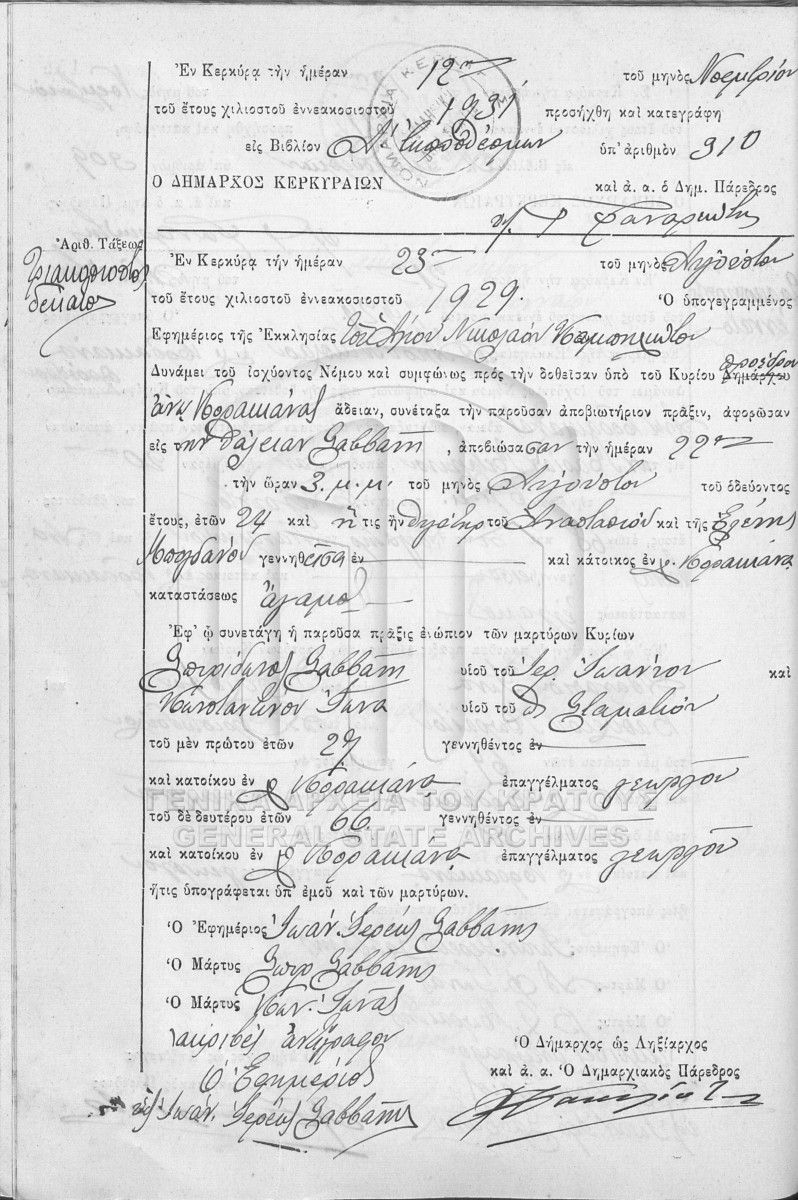 Ἐν Κερκύρᾳ τὴν ἡμέραν 12ην τοῦ μηνὸς Νοεμβρίου
τοῦ ἔτους χιλιοστοῦ ἐννεακοσιοστοῦ 1931 προσήχθη καὶ κατεγράφη
εἰς Βιβλίον ὑπ' ἀριθμὸν 310
Ο ΔΗΜΑΡΧΟΣ ΚΕΡΚΥΡΑΙΩΝ καὶ ἀ. α. ὁ Δημ. Πάρεδρος
Ἀριθ. Τάξεως
Τριακοσιοστὸς
δέκατος
Ἐν Κερκύρᾳ τὴν ἡμέραν 23 τοῦ μηνὸς Αὐγούστου
τοῦ ἔτους χιλιοστοῦ ἐννεακοσιοστοῦ 1929. Ὁ ὑπογεγραμμένος
Ἐφημέριος τῆς Ἐκκλησίας τοῦ Ἁγίου Νικολάου
Δυνάμει τοῦ ἰσχύοντος Νόμου καὶ συμφώνως πρὸς τὴν δοθεῖσαν ὑπὸ τοῦ Κυρίου Δημάρχου προέδρου
ἄνω Κορακιάνας ἄδειαν, συνέταξα τὴν παροῦσαν ἀποβιωτήριον πρᾶξιν, ἀφορῶσαν
εἰς τὴν Σαββάνη, ἀποβιώσασαν τὴν ἡμέραν 22αν
τὴν ὥραν 3. μ. μ. τοῦ μηνὸς Αὐγούστου τοῦ ὁδεύοντος
ἔτους, ἐτῶν 24 καὶ ἥτις ἦν θυγάτηρ τοῦ Ἀναστασίου καὶ τῆς Ἑλένης
Μπογδάνου γεννηθεῖσα ἐν — καὶ κάτοικος ἐν Κορακιάνα
καταστάσεως ἄγαμος
Ἐφ' ᾧ συνετάγη ἡ παροῦσα πρᾶξις ἐνώπιον τῶν μαρτύρων Κυρίων
Σπυρίδωνος Σαββάνη υἱοῦ τοῦ Ἱερ. Ἰωάννου καὶ
Κωνσταντίνου Ἰωνᾶ υἱοῦ τοῦ Σταματίου
τοῦ μὲν πρώτου ἐτῶν 27 γεννηθέντος ἐν —
καὶ κατοίκου ἐν Κορακιάνα ἐπαγγέλματος γεωργοῦ
ΓΕΝΙΚΑ ΑΡΧΕΙΑ ΤΟΥ ΚΡΑΤΟΥΣ
τοῦ δὲ δευτέρου ἐτῶν 66 γεννηθέντος ἐν —
GENERAL STATE ARCHIVES
καὶ κατοίκου ἐν Κορακιάνα ἐπαγγέλματος γεωργοῦ
ἥτις ὑπογράφεται ὑπ' ἐμοῦ καὶ τῶν μαρτύρων.
Ὁ Ἐφημέριος Ἰωάν. Ἱερεὺς Σαββάνης
Ὁ Μάρτυς Σπυρ Σαββάνης
Ὁ Μάρτυς Κων. Ἰωνᾶς
ἀκριβὲς ἀντίγραφον
Ὁ Ἐφημέριος
Ἰωάν. Ἱερεὺς Σαββάνης
Ὁ Δήμαρχος ὡς Ληξίαρχος
καὶ ἀ. α. Ὁ Δημαρχιακὸς Πάρεδρος